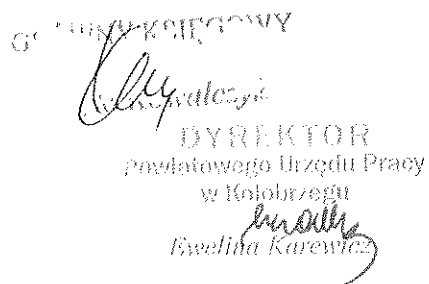 GŁÓWNY KSIĘGOWY
Kowalczyk
DYREKTOR
Powiatowego Urzędu Pracy
w Kołobrzegu
Ewelina Karewicz